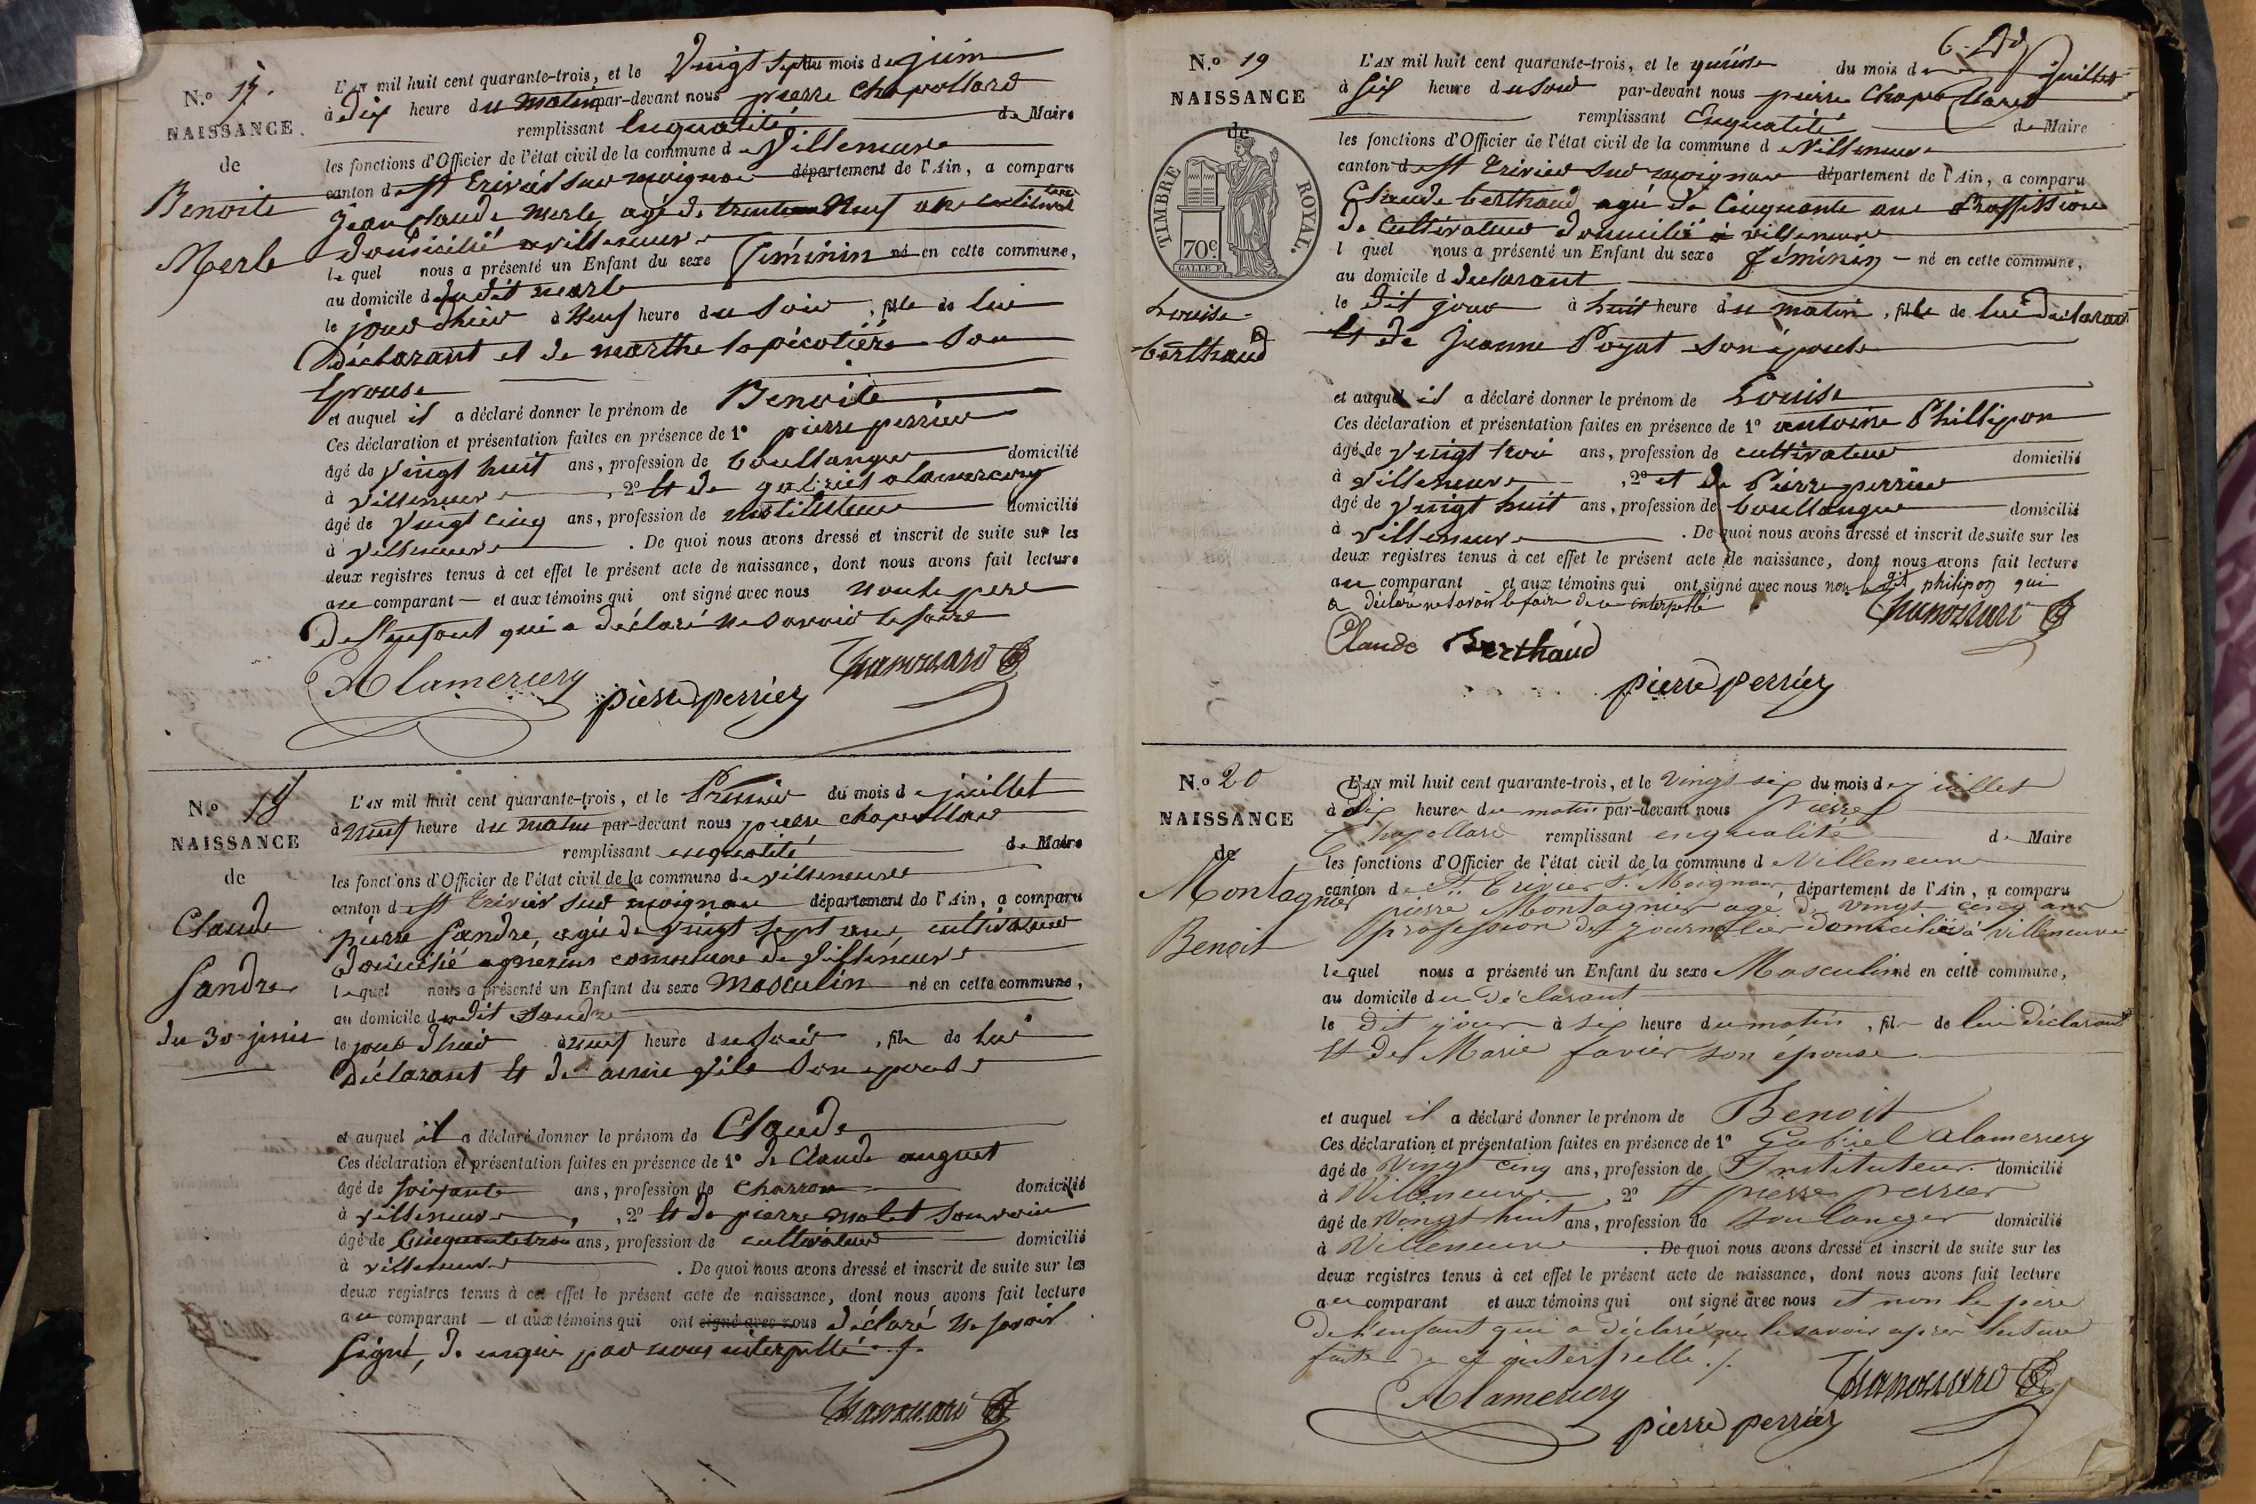 N.o 17.
NAISSANCE
de
Benoite
Merle
L'AN mil huit cent quarante-trois, et le Vingt Sept du mois de juin
à Dix heure du matin par-devant nous pierre Chapollard
remplissant Enqualité de Maire
les fonctions d'Officier de l'état civil de la commune de Villeneuve
canton de St Trivier sur moignan département de l'Ain, a comparu
Jean Claude Merle agé de trente Neuf ans cultivateur
Domicilié a villeneuve
lequel nous a présenté un Enfant du sexe féminin né en cette commune,
au domicile dudit merle
le jour d'hier à Neuf heure du Soir, fille de lui
Déclarant et de marthe lapécotière Son
Epouse
et auquel il a déclaré donner le prénom de Benoite
Ces déclaration et présentation faites en présence de 1° pierre perrier
âgé de Vingt huit ans, profession de boullanger domicilié
à Villeneuve, 2° Et de gabriel alamercery
âgé de Vingt cinq ans, profession de instituteur domicilié
à Villeneuve. De quoi nous avons dressé et inscrit de suite sur les
deux registres tenus à cet effet le présent acte de naissance, dont nous avons fait lecture
au comparant — et aux témoins qui ont signé avec nous non le pere
De l'enfant qui a déclaré ne Savoir le faire
Alamercery
pierre perrier
N.o 18
NAISSANCE
de
Claude
Sandre
du 30 juin
L'AN mil huit cent quarante-trois, et le Premier du mois de juillet
à Neuf heure du matin par-devant nous pierre chapollard
remplissant enqualité de Maire
les fonctions d'Officier de l'état civil de la commune de villeneuve
canton de St Trivier sur moignan département de l'Ain, a comparu
pierre Sandre, agé de Vingt Sept ans, cultivateur
Domicilié a commune de Villeneuve
lequel nous a présenté un Enfant du sexe masculin né en cette commune,
au domicile dudit Sandre
le jour d'hier à neuf heure du soir, fils de lui
Déclarant Et de Son epouse
et auquel il a déclaré donner le prénom de Claude
Ces déclaration et présentation faites en présence de 1° de Claude auguet
âgé de soixante ans, profession de charron domicilié
à villeneuve, 2° Et de pierre
âgé de Cinquante trois ans, profession de cultivateur domicilié
à villeneuve. De quoi nous avons dressé et inscrit de suite sur les
deux registres tenus à cet effet le présent acte de naissance, dont nous avons fait lecture
au comparant — et aux témoins qui ont signé avec nous déclaré ne savoir
signé, De enquis par nous interpellé ./.
6
N.o 19
NAISSANCE
de
TIMBRE ROYAL.
70c.
Louise
berthaud
L'AN mil huit cent quarante-trois, et le quinse du mois de juillet
à six heure du soir par-devant nous pierre Chapollard
remplissant Enqualité de Maire
les fonctions d'Officier de l'état civil de la commune de Villeneuve
canton de St Trivier sur moignan département de l'Ain, a comparu
Claude berthaud agé de Cinquante ans Proffission
de Cultivateur domicilié a villeneuve
lequel nous a présenté un Enfant du sexe féminin — né en cette commune,
au domicile d declarant
le dit jour à huit heure du matin, fille de lui declarant
Et de Jeanne Poyat son épouse
et auquel il a déclaré donner le prénom de Louise
Ces déclaration et présentation faites en présence de 1° antoine Phillipon
âgé de Vingt trois ans, profession de cultivateur domicilié
à Villeneuve, 2° et de Pierre perrier
âgé de Vingt huit ans, profession de boullanger domicilié
à villeneuve. De quoi nous avons dressé et inscrit de suite sur les
deux registres tenus à cet effet le présent acte de naissance, dont nous avons fait lecture
au comparant et aux témoins qui ont signé avec nous non le dit philipon qui
a déclaré ne savoir le faire de ce interpellé
Claude Berthaud
pierre perrier
N.o 20
NAISSANCE
de
Montagnier
Benoit
L'AN mil huit cent quarante-trois, et le vingt six du mois de juillet
à Dix heure du matin par-devant nous Pierre
Chapollard remplissant enqualité de Maire
les fonctions d'Officier de l'état civil de la commune de Villeneuve
canton de St Trivier s. Moignan, département de l'Ain, a comparu
pierre Montagnier agé de vingt cinq ans
profession de journalier domicilié à villeneuve
lequel nous a présenté un Enfant du sexe Masculin né en cette commune,
au domicile du Déclarant
le Dit jour à six heure du matin, fils de lui Déclarant
Et de Marie favier son épouse
et auquel il a déclaré donner le prénom de Benoit
Ces déclaration et présentation faites en présence de 1° Gabriel Alamercery
âgé de Vingt cinq ans, profession de Instituteur domicilié
à Villeneuve, 2° Et pierre perrier
âgé de Vingt huit ans, profession de boulanger domicilié
à Villeneuve. De quoi nous avons dressé et inscrit de suite sur les
deux registres tenus à cet effet le présent acte de naissance, dont nous avons fait lecture
au comparant et aux témoins qui ont signé avec nous et non le père
De l'enfant qui a déclaré ne le savoir après lecture
faite et interpellé ./.
Alamercery
pierre perrier